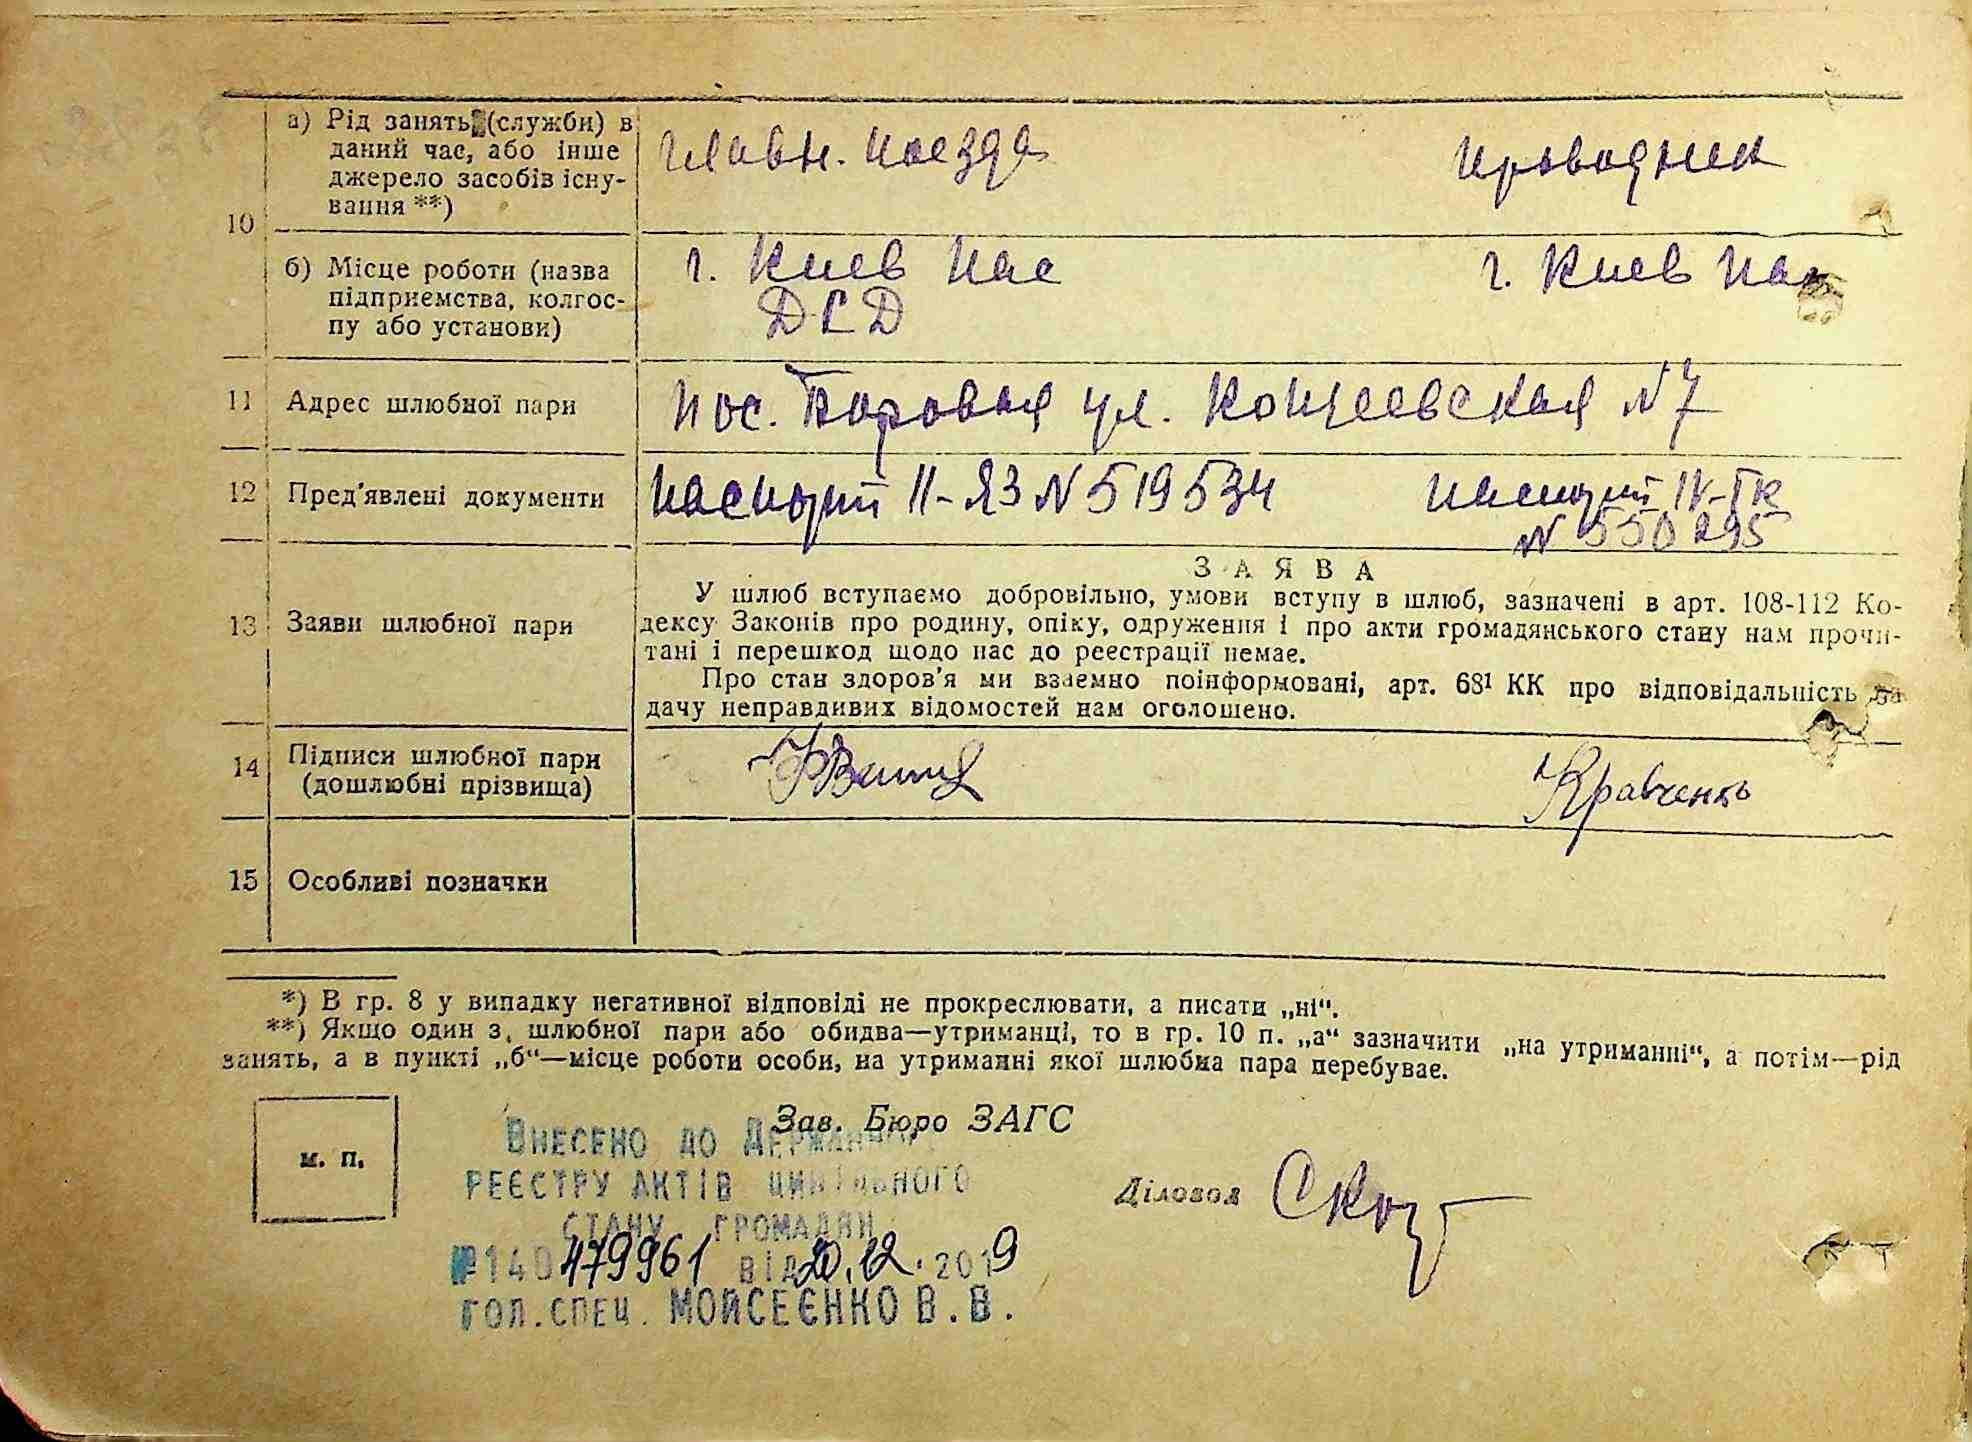 10
а) Рід занять (служби) в
даний час, або інше
джерело засобів існу-
вання **)
Главн. поезда
Проводник
б) Місце роботи (назва
підприємства, колгос-
пу або установи)
г. Киев Пас
ДРД
г. Киев Пас
11 Адрес шлюбної пари
пос. Боровая ул. Концеевская N 7
12 Пред'явлені документи
паспорт II-ЯЗ N 519534
паспорт IV-ТК
N 550295
13 Заяви шлюбної пари
ЗАЯВА
У шлюб вступаємо добровільно, умови вступу в шлюб, зазначені в арт. 108-112 Ко-
дексу Законів про родину, опіку, одруження і про акти громадянського стану нам прочи-
тані і перешкод щодо нас до реєстрації немає.
Про стан здоров'я ми взаємно поінформовані, арт. 68¹ КК про відповідальність за
дачу неправдивих відомостей нам оголошено.
14 Підписи шлюбної пари
(дошлюбні прізвища)
Кравченко
15 Особливі позначки
*) В гр. 8 у випадку негативної відповіді не прокреслювати, а писати „ні“.
**) Якщо один з шлюбної пари або обидва—утриманці, то в гр. 10 п. „а“ зазначити „на утриманні“, а потім—рід
занять, а в пункті „б“—місце роботи особи, на утриманні якої шлюбна пара перебуває.
м. п.
Зав. Бюро ЗАГС
Діловод
Внесено до Державного
реєстру актів цивільного
стану громадян
№140479961 від 20.12.2019
гол.спец. Мойсеєнко В.В.